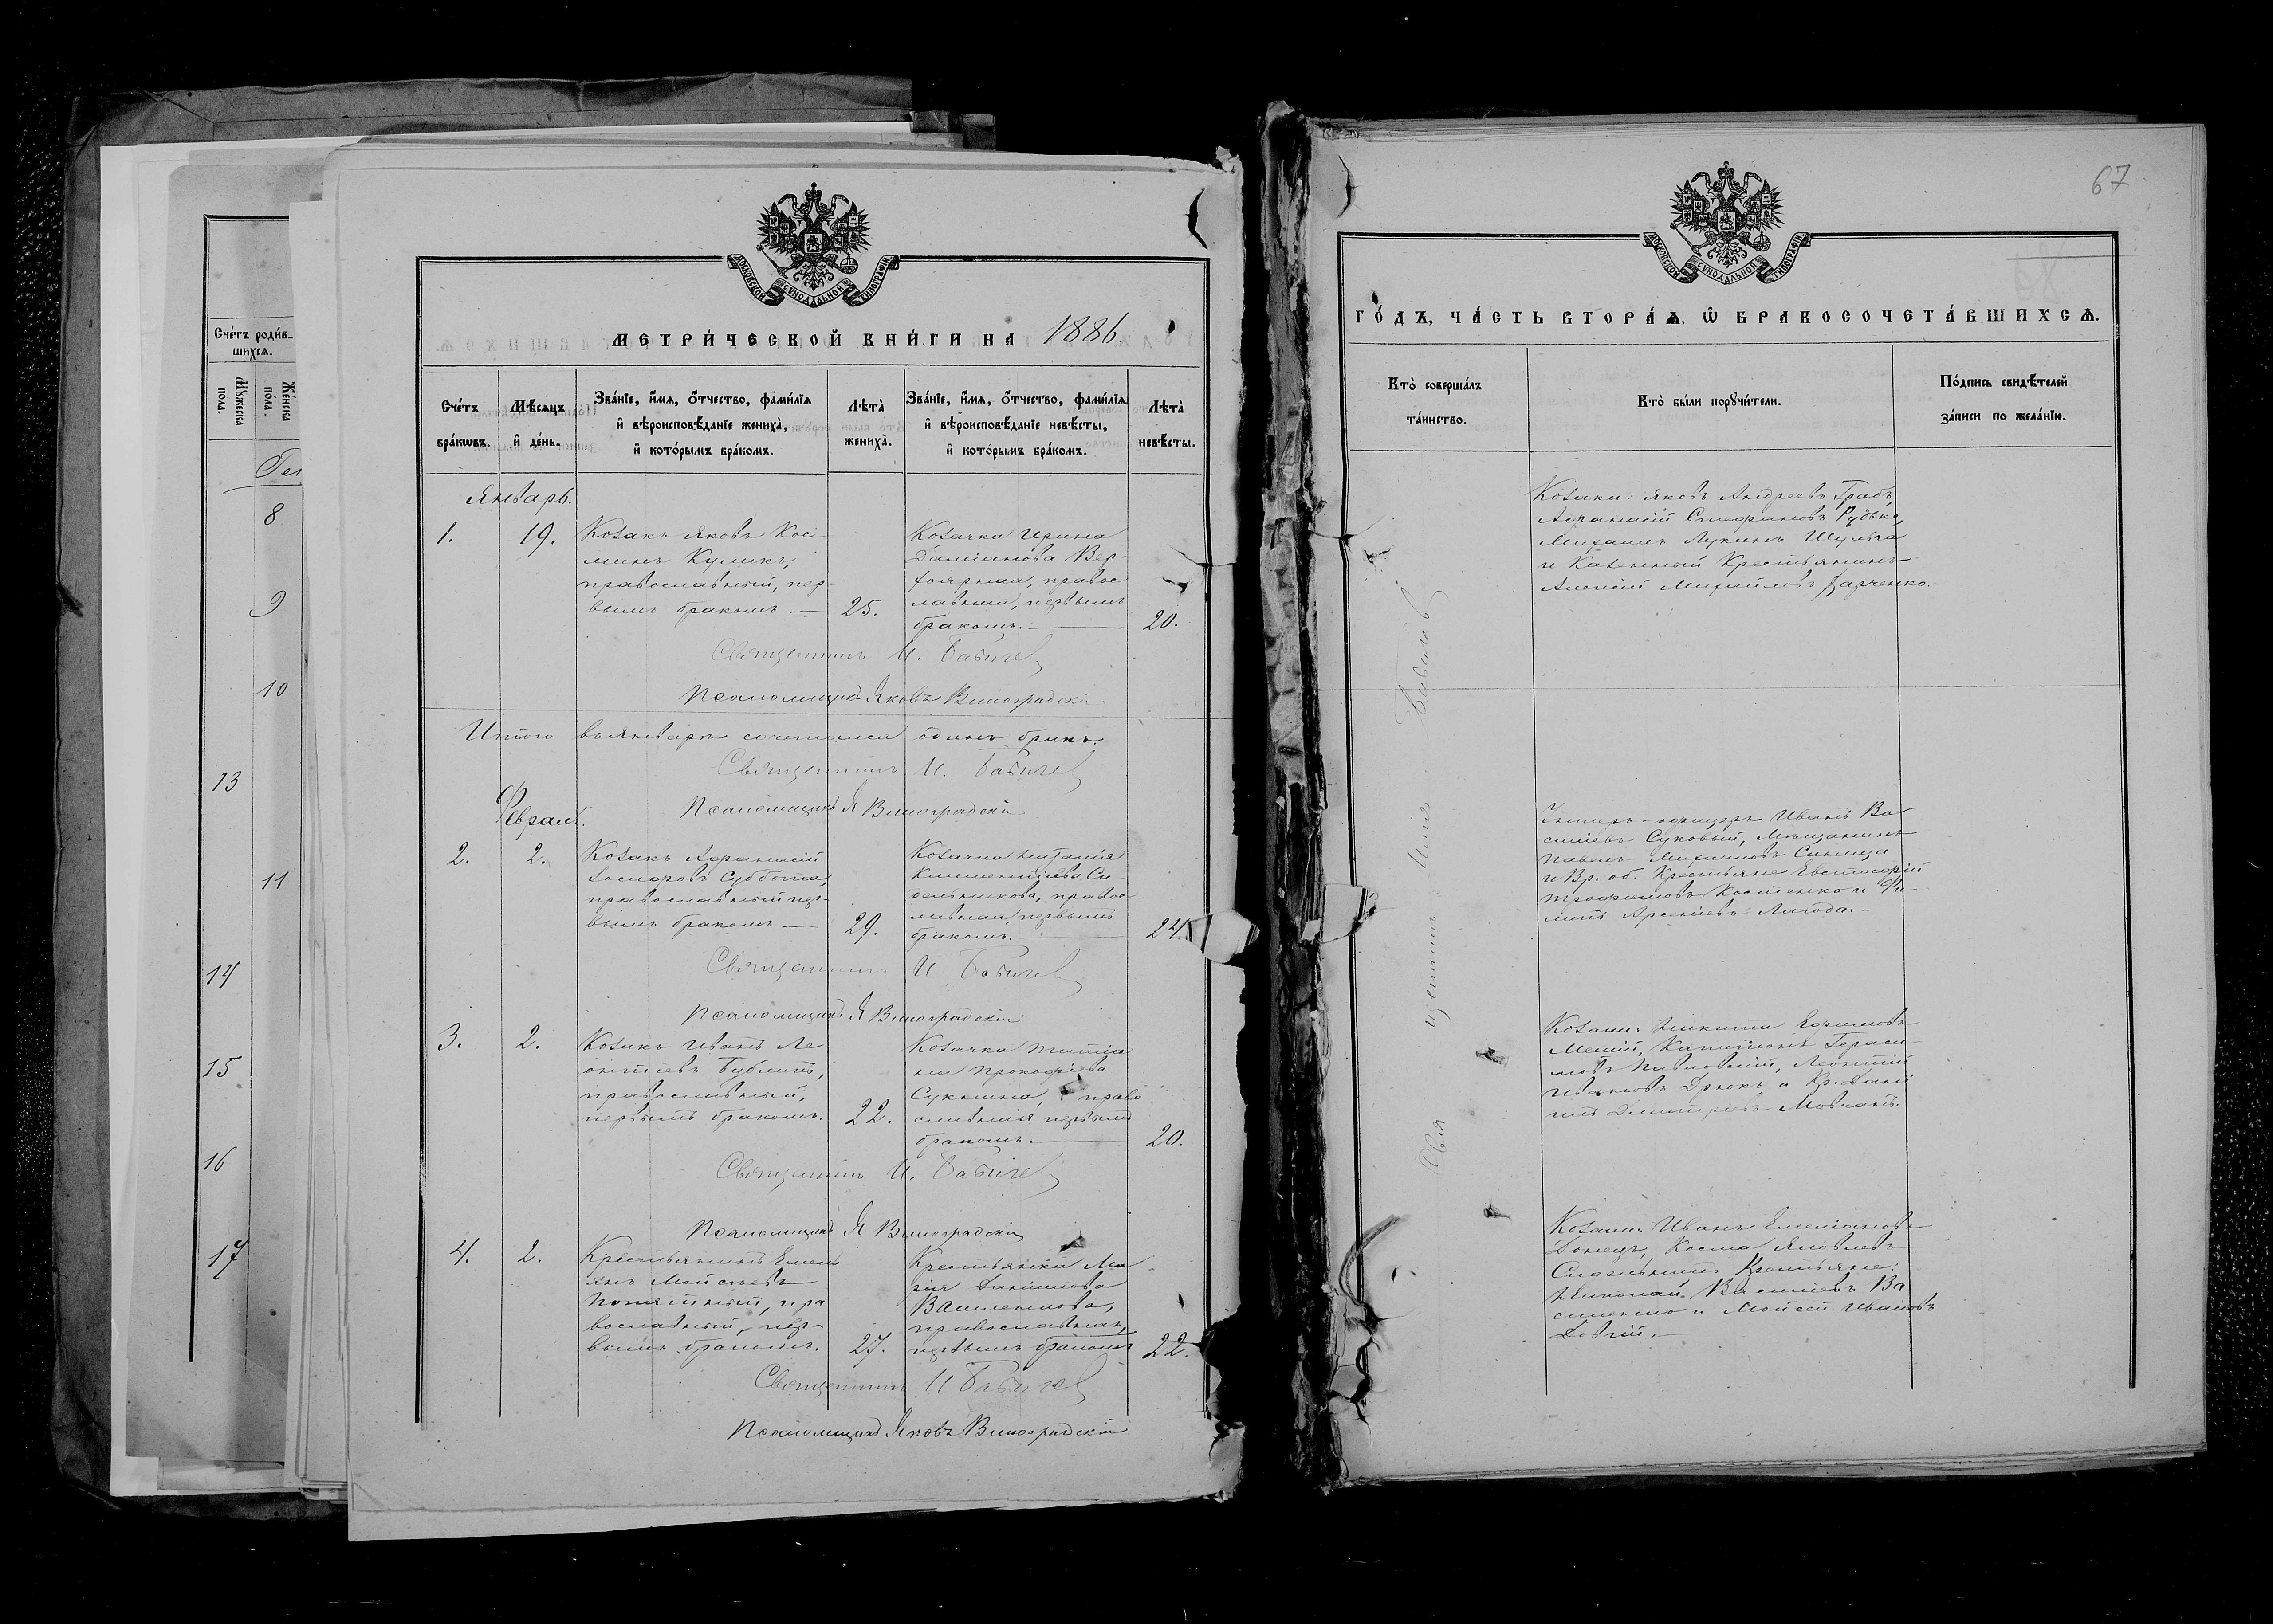 Счётъ роди́в-
шихся.
Мꙋжеска пола.
Же́нска пола.
8
9
10
13
11
14
15
16
17
МОСКОВСКОЙ СѴНОДАЛЬНОЙ ТИПОГРАФІИ
МЕТРИ́ЧЕСКОЙ КНИ́ГИ НА 1886
Сче́тъ бра́кωвъ.
Мѣ́сяцъ и҆ де́нь.
Зва́нїе, и҆́мя, ѻ҆́тчество, фами́лїя и҆ вѣроисповѣ́данїе жениха̀, и҆ кото́рымъ бра́комъ.
Лѣта̀ жениха̀.
Зва́нїе, и҆́мя, ѻ҆́тчество, фами́лїя и҆ вѣроисповѣ́данїе невѣ́сты, и҆ кото́рымъ бра́комъ.
Лѣта̀ невѣ́сты.
Январь.
1. 19.
Козакъ Яковъ Кос-
минъ Куликъ,
православный, пер-
вымъ бракомъ. —
25.
Козачка Ирина
Даміанова Вер-
правос
лавная, первымъ
бракомъ. —
20.
Священникъ И. Бабичев
Псаломщикъ Яковъ Виноградскій
Итого въ Январѣ сочетался одинъ бракъ.
Священникъ И. Бабичев
Псаломщикъ Я Виноградскій
Февраль.
2. 2.
Козакъ Афанасій
Суббота,
православный пер-
вымъ бракомъ —
29.
Козачка Наталія
Климентіева Си-
дельникова, правос
лавная первымъ
бракомъ. —
24.
Священникъ И Бабичев
Псаломщикъ Я Виноградскій
3. 2.
Козакъ Иванъ Ле
онтіевъ Бублик,
православный,
первымъ бракомъ.
22.
Козачка Татіа
на Прокофіева
Сукачина, право
славная первымъ
бракомъ. —
20.
Священникъ И. Бабичев
Псаломщикъ Я Виноградскій
4. 2.
Крестьянинъ Емель
янъ Мойсеевъ
пра
вославный, пер-
вымъ бракомъ.
27.
Крестьянка Ма
рія Данилова
Василенкова,
православная,
первымъ бракомъ
22.
Священникъ И Бабичев
Псаломщикъ Яковъ Виноградскій
67
МОСКОВСКОЙ СѴНОДАЛЬНОЙ ТИПОГРАФІИ
ГО́ДЪ, ЧА́СТЬ ВТОРА́Ѧ, Ѽ БРАКОСОЧЕТА́ВШИХСѦ.
Кто̀ соверша́лъ та́инство.
Кто̀ бы́ли порꙋчи́тели.
По́дпись свидѣ́телей за́писи по жела́нїю.
Козаки: Яковъ Андреевъ Грабъ,
Афанасій Стефановъ Рудька,
Михаилъ Лукинъ Шульга
и Казенный Крестьянинъ
Алексій Михайловъ Харченко.
Унтеръ-офицеръ Иванъ Ва
силіевъ Суковый, Мѣщанинъ
Павелъ Михаиловъ Синица
и Вр. об. Крестьяне Евстафій
Трофимовъ Костенко и Фи-
Козаки: Никита
Герасі
мовъ Павловскій, Леонтій
Ивановъ Дрюкъ и Кр. Дані
илъ Димитріевъ Мовчанъ.
Козаки: Иванъ Емеліановъ
Донецъ, Косма Яковлевъ
Крестьяне:
Николай Василіевъ Ва
силенко и Мойсей Ивановъ
Довгій.